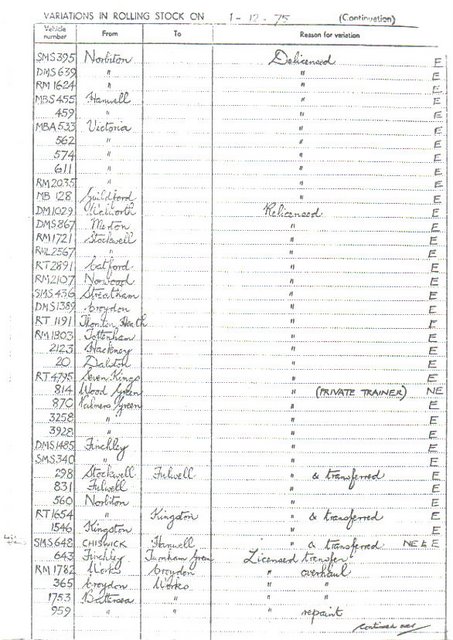 VARIATIONS IN ROLLING STOCK ON 1-12-75 (Continuation)
Vehicle number From To Reason for variation
SMS395 Norbiton Delicensed E
DMS639 " " E
RM1624 " " E
MBS455 Hanwell " E
459 " " E
MBA533 Victoria " E
562 " " E
574 " " E
611 " " E
RM2035 " " E
MB 128 Guildford " E
DM1029 Walworth Relicensed E
DMS867 Merton " E
RM1721 Stockwell " E
RML2567 " " E
RT2891 Catford " E
RM2107 Norwood " E
SMS436 Streatham " E
DMS1389 Croydon " E
RT 1191 Thornton Heath " E
RM1803 Tottenham " E
2123 Hackney " E
20 Dalston " E
RT4795 Seven Kings " E
814 Wood Green " (PRIVATE TRAINER) NE
870 Palmers Green " E
3258 " " E
3928 " " E
DMS1485 Finchley " E
SMS340 " " E
298 Stockwell Fulwell " & transferred E
831 Fulwell " E
560 Norbiton " E
RT1654 " Kingston " & transferred E
1546 Kingston " E
SMS648 CHISWICK Hanwell " & transferred NE & E
643 Finchley Turnham Green Licensed transfer
RM1782 Works Croydon " overhaul
365 Croydon Works " "
1753 Battersea " " "
959 " " " repaint
continued over